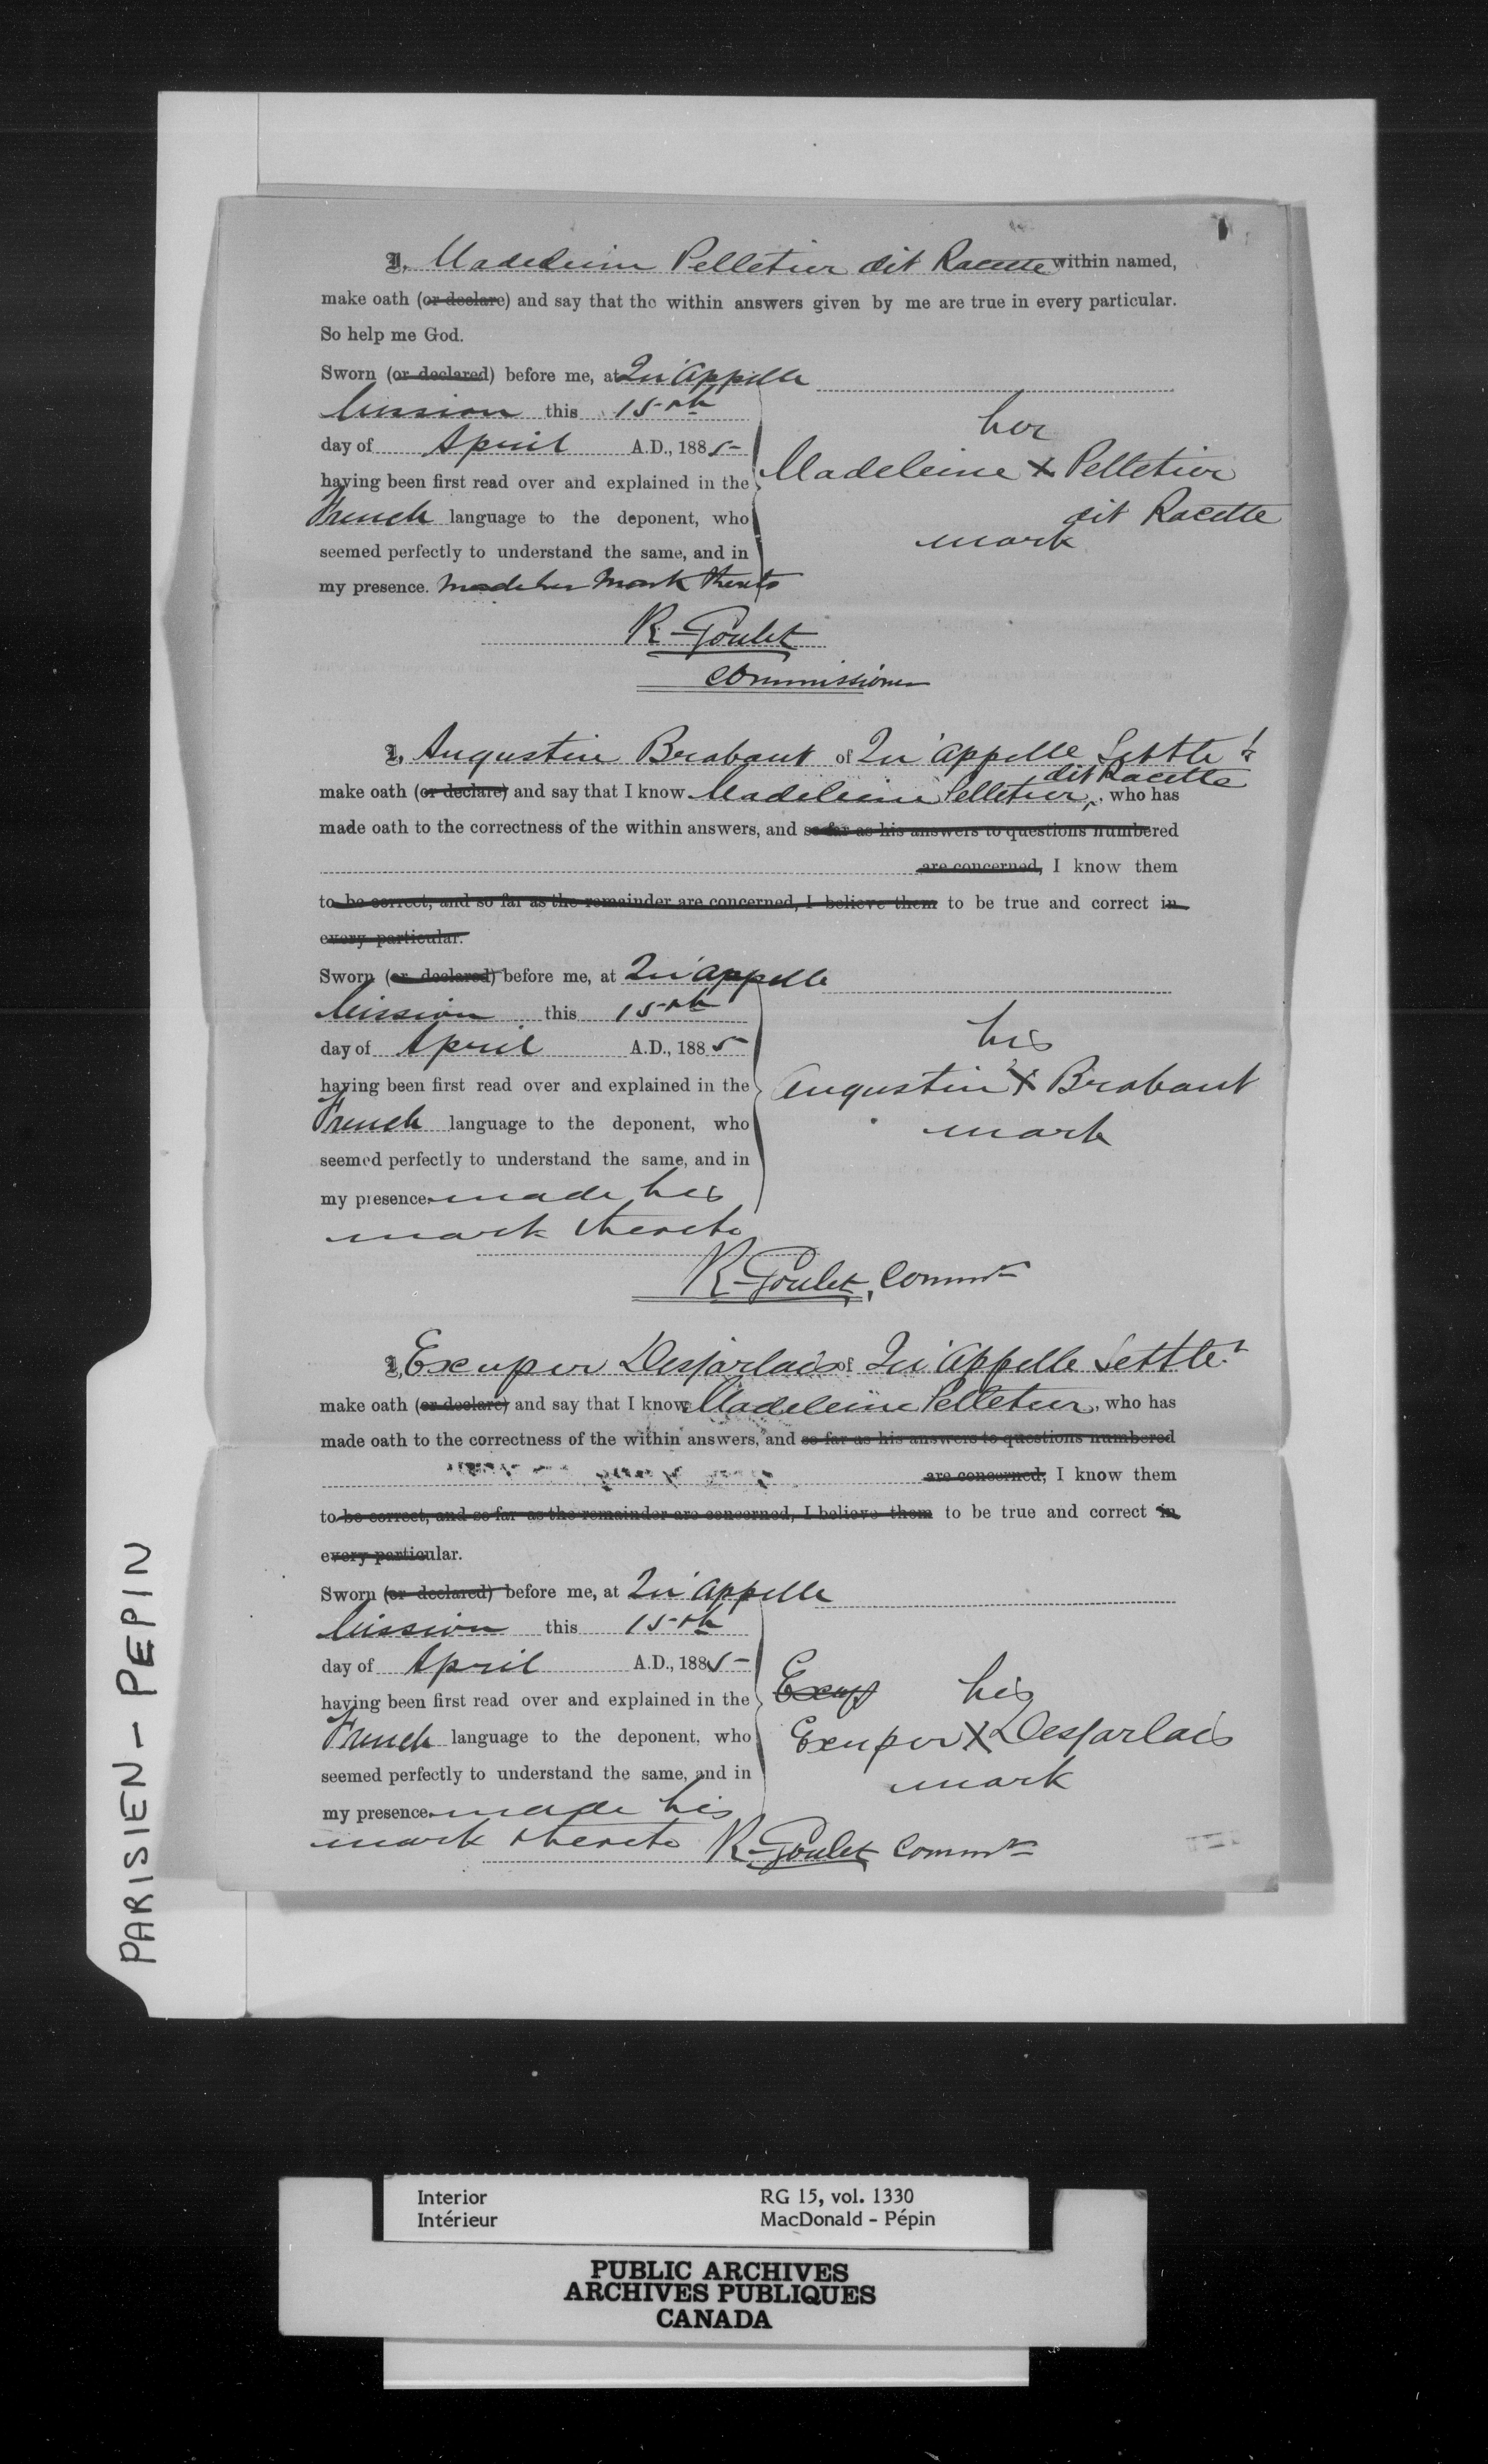 I, Madeleine Pelletier dit Racette within named,
make oath (or declare) and say that the within answers given by me are true in every particular.
So help me God.
Sworn (or declared) before me, at Qu'Appelle
Mission this 15th
day of April A.D., 1885
having been first read over and explained in the
French language to the deponent, who
seemed perfectly to understand the same, and in
my presence. made her mark thereto
her
Madeleine X Pelletier
dit Racette
mark
R. Goulet
Commissioner
I, Augustin Brabant of Qu'Appelle Settlet
dit Racette
make oath (or declare) and say that I know Madeleine Pelletier, who has
made oath to the correctness of the within answers, and so far as his answers to questions numbered
are concerned, I know them
to be correct, and so far as the remainder are concerned, I believe them to be true and correct in
every particular.
Sworn (or declared) before me, at Qu'Appelle
Mission this 15th
day of April A.D., 1885
having been first read over and explained in the
French language to the deponent, who
seemed perfectly to understand the same, and in
my presence. made his
mark thereto
his
Augustin X Brabant
mark
R. Goulet, Commr
I, Exuper Desjarlais of Qu'Appelle Settlet
make oath (or declare) and say that I know Madeleine Pelletier, who has
made oath to the correctness of the within answers, and so far as his answers to questions numbered
are concerned, I know them
to be correct, and so far as the remainder are concerned, I believe them to be true and correct in
every particular.
Sworn (or declared) before me, at Qu'Appelle
Mission this 15th
day of April A.D., 1885
having been first read over and explained in the
French language to the deponent, who
seemed perfectly to understand the same, and in
my presence. made his
mark thereto
Exup his
Exuper X Desjarlais
mark
R. Goulet Commr
PARISIEN - PEPIN
Interior RG 15, vol. 1330
Intérieur MacDonald - Pépin
PUBLIC ARCHIVES
ARCHIVES PUBLIQUES
CANADA